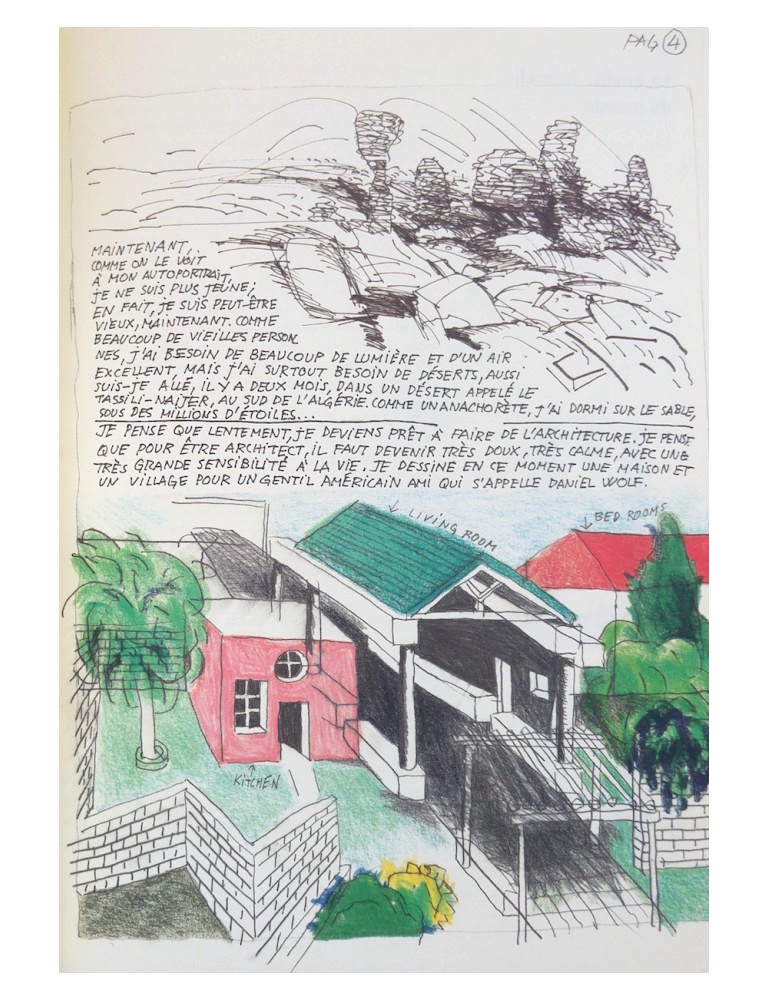 PAG 4
MAINTENANT,
COMME ON LE VOIT
À MON AUTOPORTRAIT,
JE NE SUIS PLUS JEUNE;
EN FAIT, JE SUIS PEUT-ÊTRE
VIEUX, MAINTENANT. COMME
BEAUCOUP DE VIEILLES PERSON
NES, J'AI BESOIN DE BEAUCOUP DE LUMIÈRE ET D'UN AIR
EXCELLENT, MAIS J'AI SURTOUT BESOIN DE DÉSERTS, AUSSI
SUIS-JE ALLÉ, IL Y A DEUX MOIS, DANS UN DÉSERT APPELÉ LE
TASSILI-NAJJER, AU SUD DE L'ALGÉRIE. COMME UN ANACHORÈTE, J'AI DORMI SUR LE SABLE,
SOUS DES MILLIONS D'ÉTOILES...
JE PENSE QUE LENTEMENT, JE DEVIENS PRÊT À FAIRE DE L'ARCHITECTURE. JE PENSE
QUE POUR ÊTRE ARCHITECT, IL FAUT DEVENIR TRÈS DOUX, TRÈS CALME, AVEC UNE
TRÈS GRANDE SENSIBILITÉ À LA VIE. JE DESSINE EN CE MOMENT UNE MAISON ET
UN VILLAGE POUR UN GENTIL AMÉRICAIN AMI QUI S'APPELLE DANIEL WOLF.
LIVING ROOM
BED ROOMS
KITCHEN